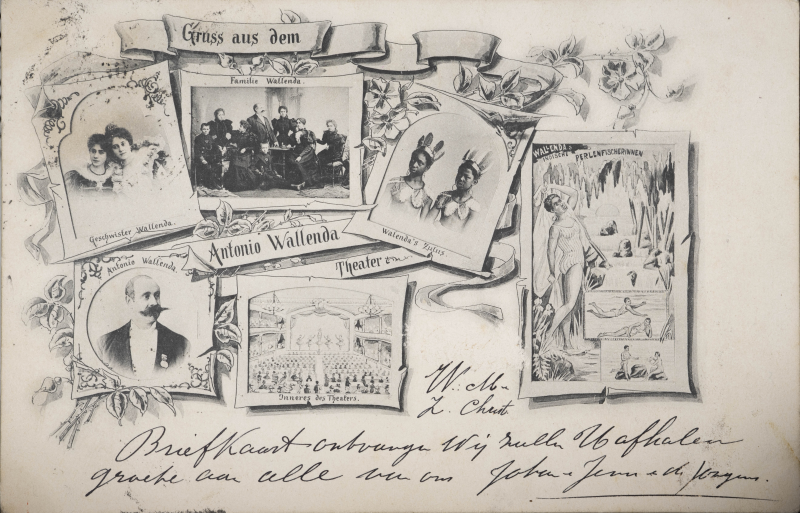 Gruss aus dem
Familie Wallenda.
Geschwister Wallenda.
Walenda's Zulus.
WALLENDA'S
INDISCHE PERLENFISCHERINNEN
Antonio Wallenda
Theater
Antonio Wallenda.
Inneres des Theaters.
W. M.
Z. Cheist
Briefkaart ontvangen Wij zullen U afhalen
groete aan alle van ons Johan Jenn de Jongens.